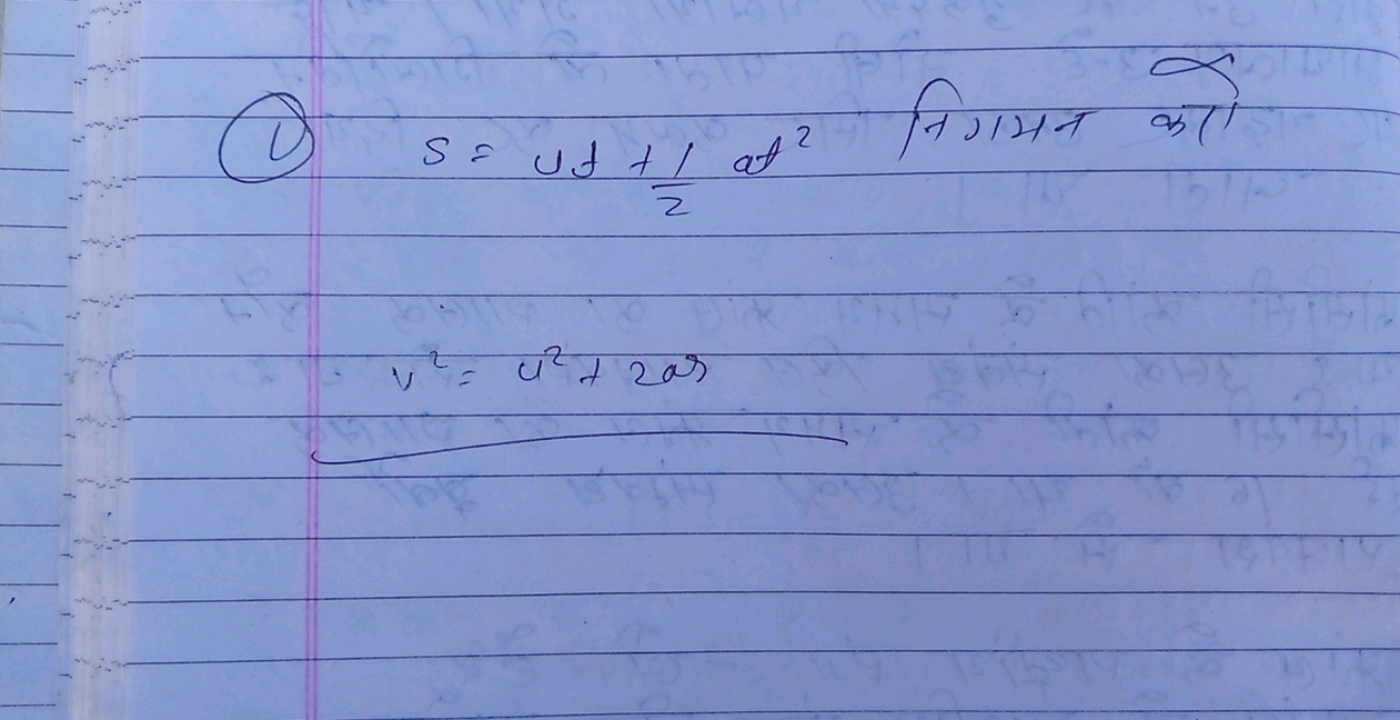 ① S = ut + 1/2 at² निगमन करो
v² = u² + 2as